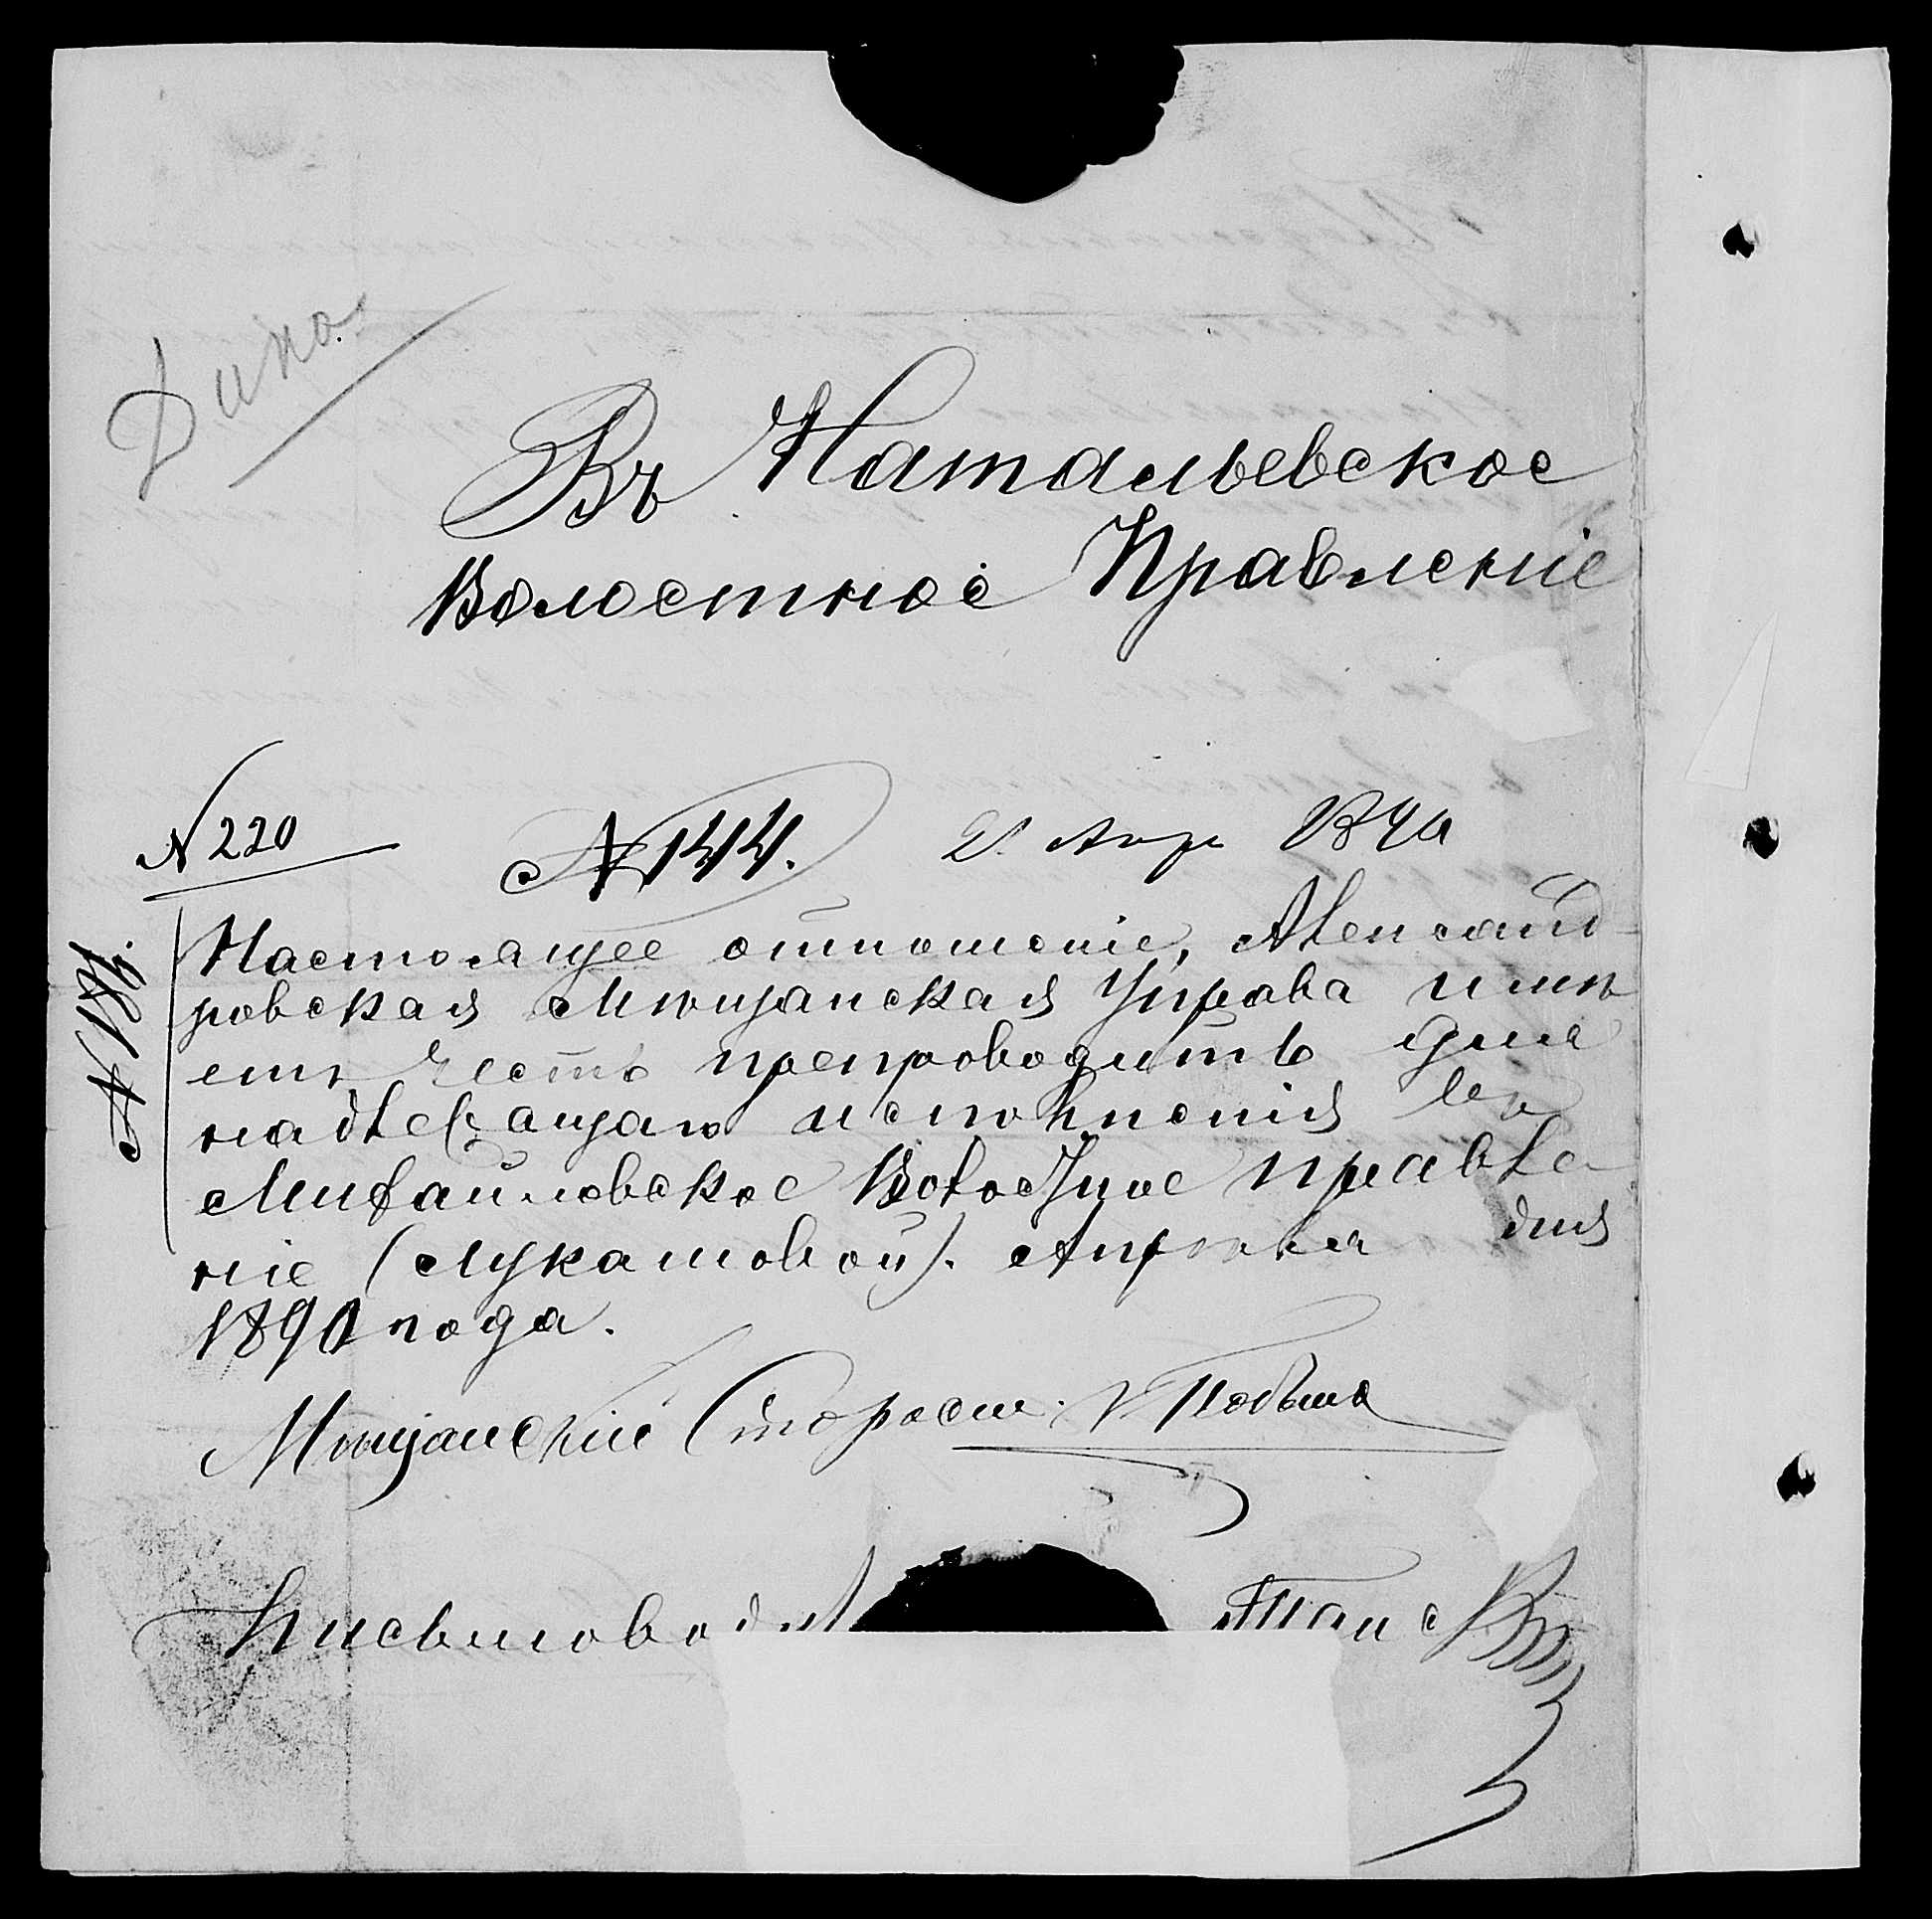 Дило
Въ Натальевское
Волостное Правленіе
№ 220
№ 144. 21 Апр 1890
Настоящее отношеніе, Александ-
ровская Мѣщанская Управа имѣ
етъ Честь препроводить для
надлежащаго исполненія въ
Михайловское Волостное правле-
ніе (Лукашовой). Апреля дня
1890 года.
Мѣщанскій Старост.
Письмовод